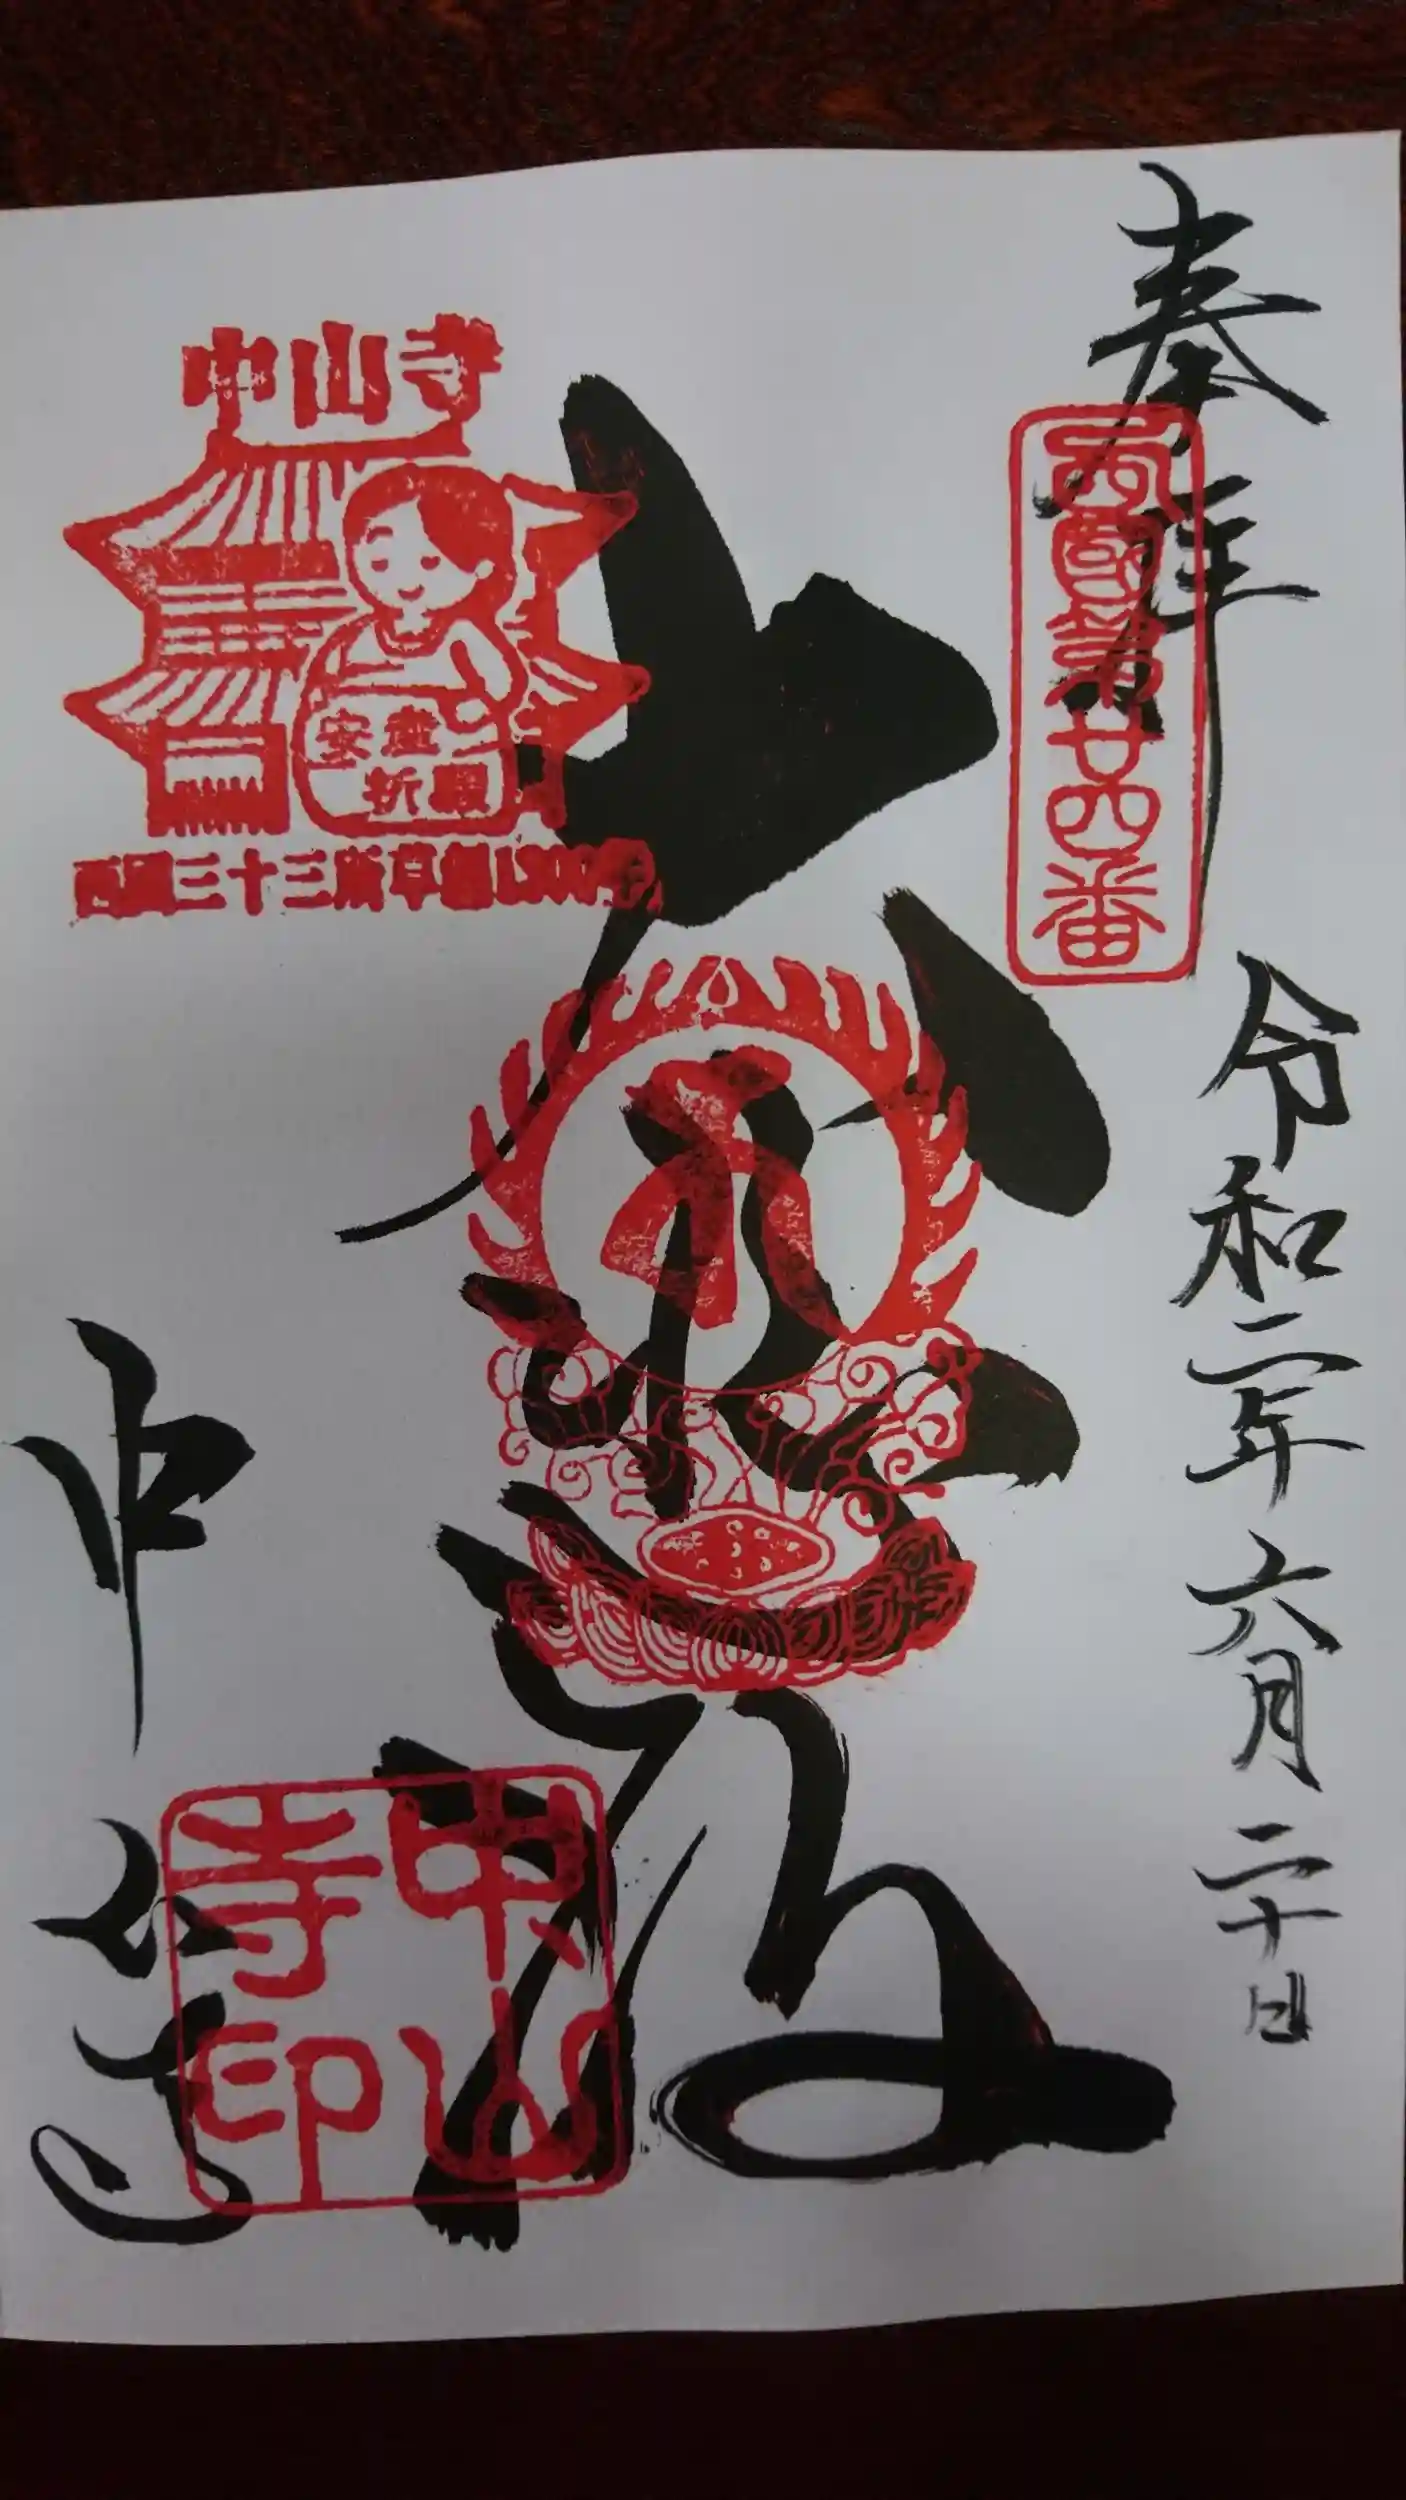 奉拝
西國第廿四番
令和二年六月二十日
大悲殿
中山寺
安産
祈願
西国三十三所草創1300年
中山寺
中山寺印